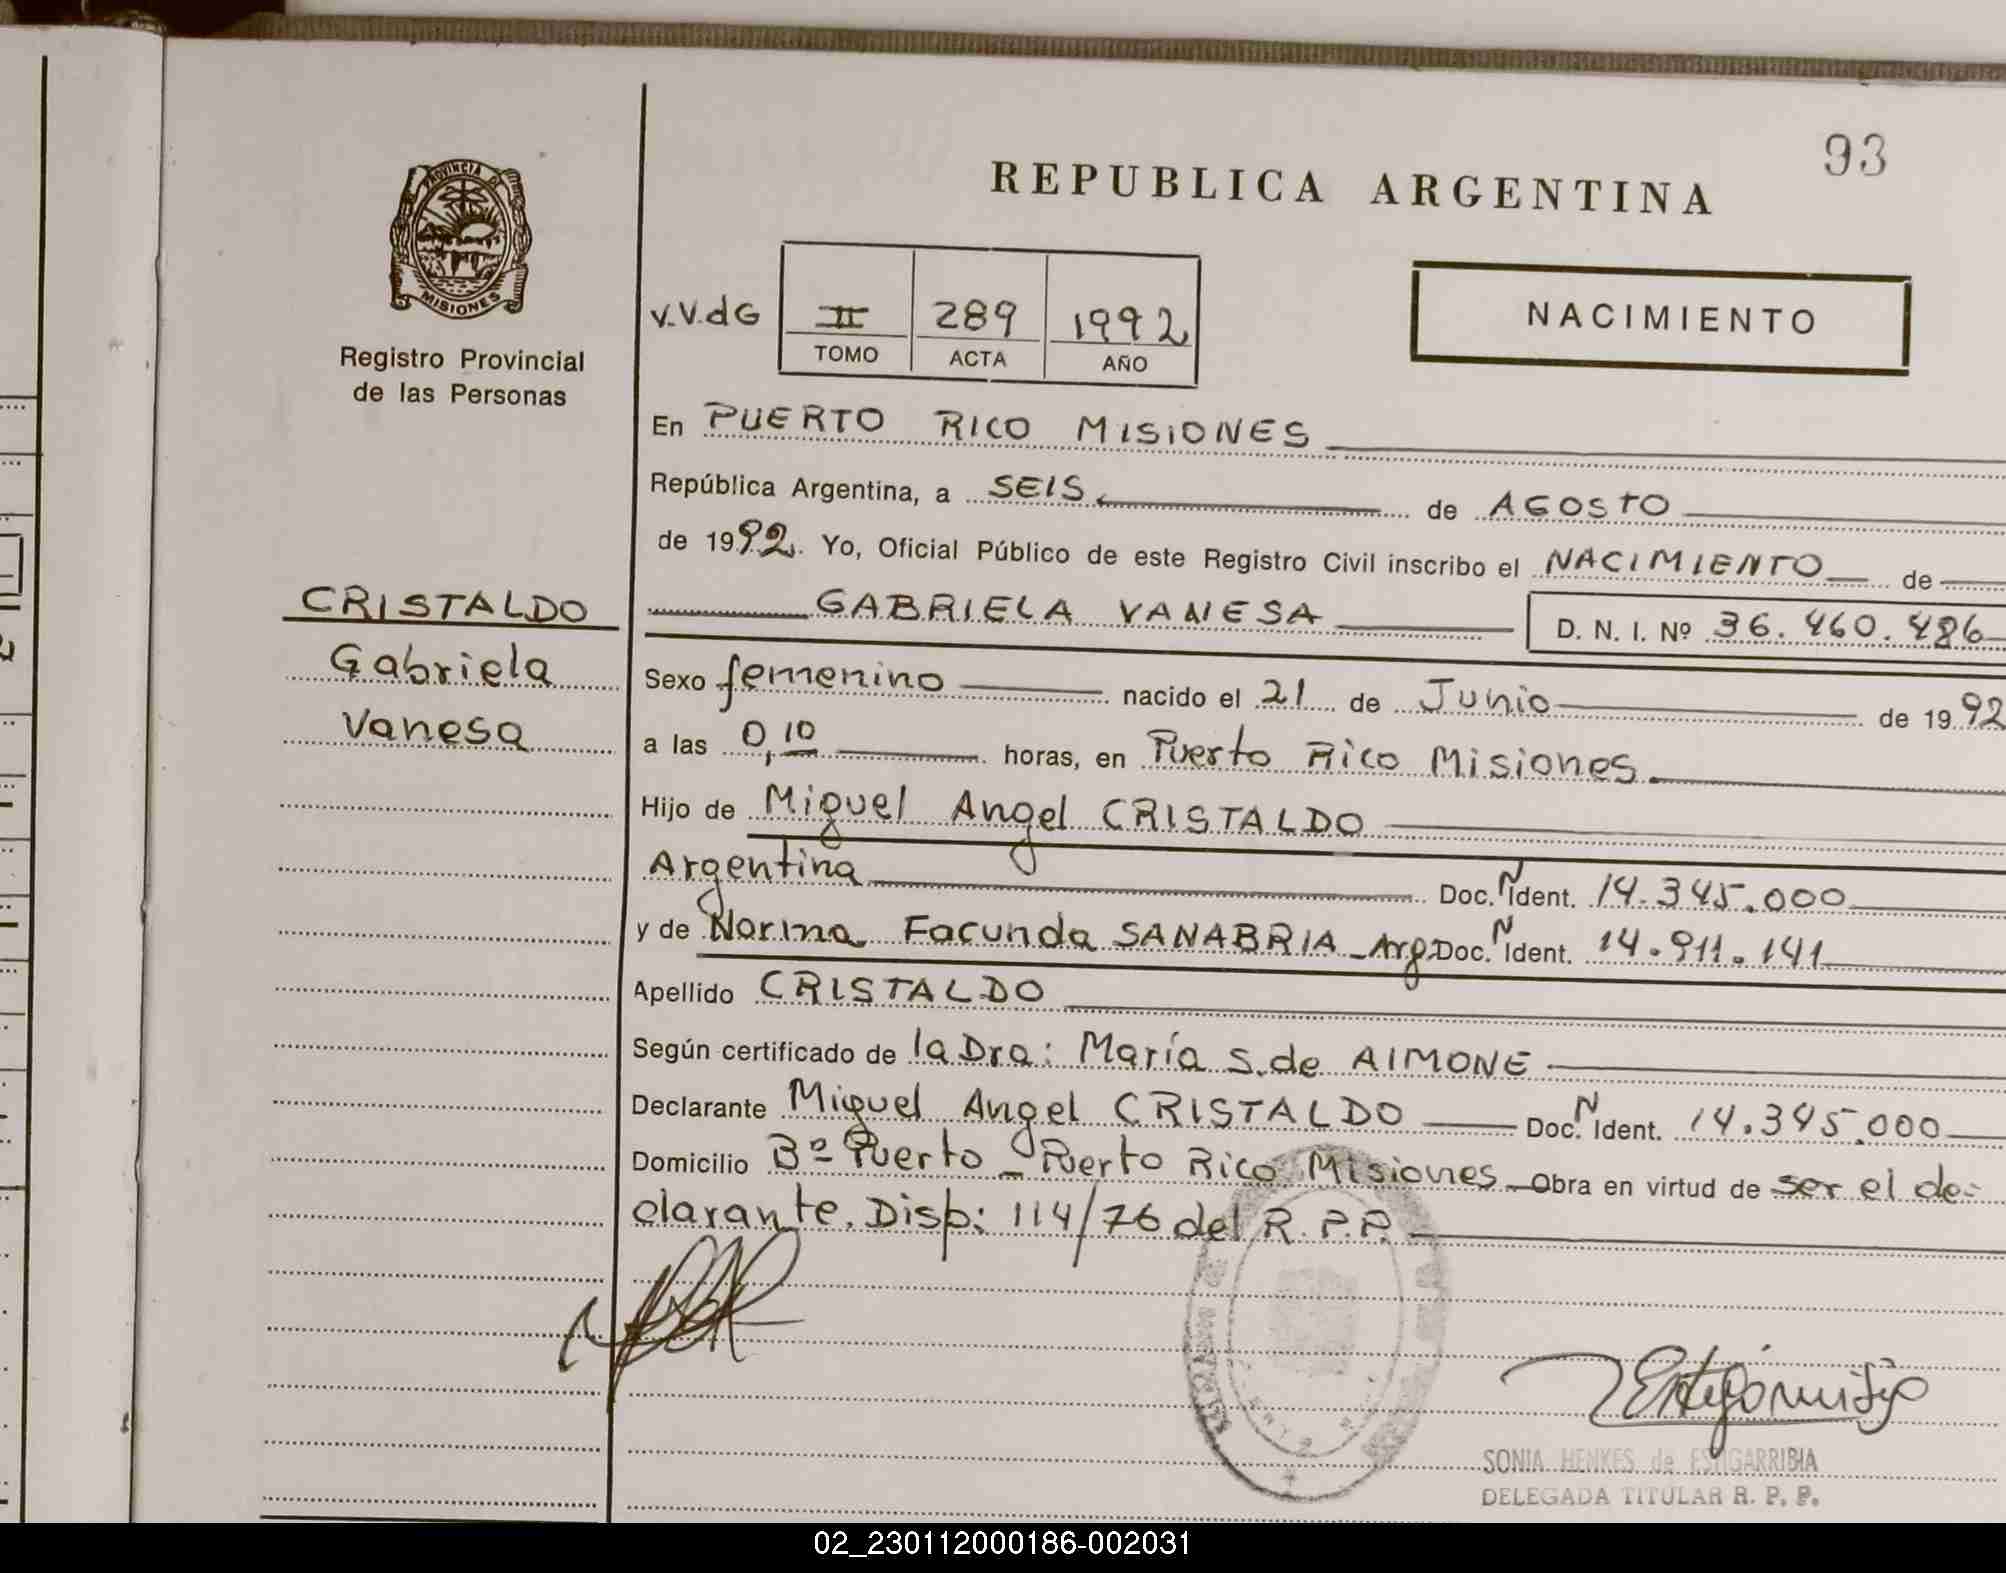 93
REPUBLICA ARGENTINA
PROVINCIA DE
MISIONES
Registro Provincial
de las Personas
NACIMIENTO
V.V.dG II 289 1992
TOMO ACTA AÑO
En PUERTO RICO MISIONES
República Argentina, a SEIS de AGOSTO
de 1992. Yo, Oficial Público de este Registro Civil inscribo el NACIMIENTO de
GABRIELA VANESA D. N. I. Nº 36.460.486
CRISTALDO
Gabriela
Vanesa
Sexo femenino nacido el 21 de Junio de 1992
a las 0,10 horas, en Puerto Rico Misiones
Hijo de Miguel Angel CRISTALDO
Argentina Doc. N Ident. 14.345.000
y de Norma Facunda SANABRIA - Arg. Doc. N Ident. 14.911.141
Apellido CRISTALDO
Según certificado de la Dra: María S. de AIMONE
Declarante Miguel Angel CRISTALDO Doc. N Ident. 14.345.000
Domicilio Bº Puerto - Puerto Rico Misiones Obra en virtud de ser el de-
clarante. Disp: 114/76 del R.P.P.
SONIA HENKES de ESTIGARRIBIA
DELEGADA TITULAR R. P. P.
02_230112000186-002031